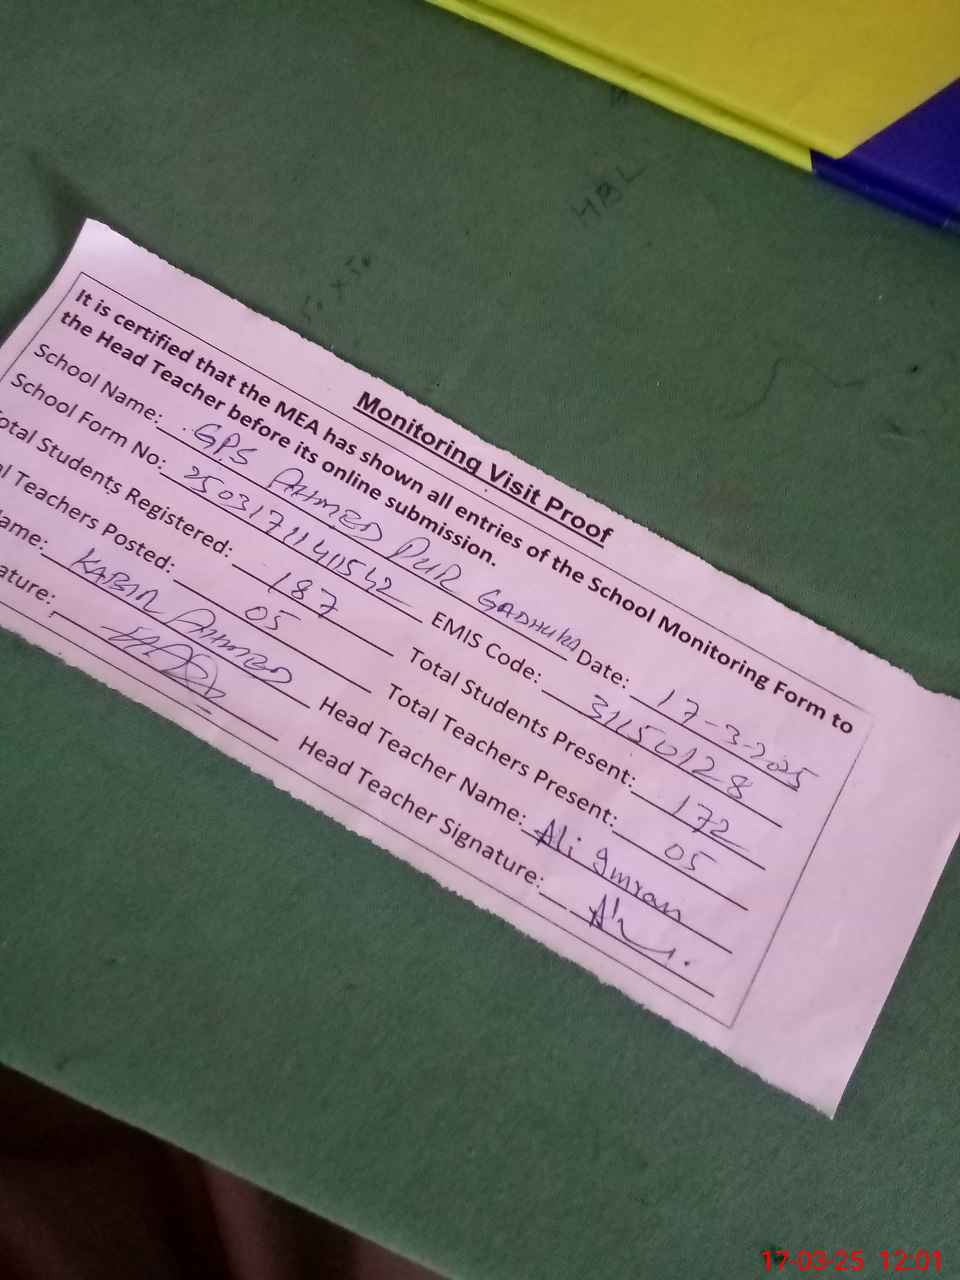 HBL
Monitoring Visit Proof
It is certified that the MEA has shown all entries of the School Monitoring Form to
the Head Teacher before its online submission.
School Name: GPS AHMED PUR GADHUKA Date: 17-3-2025
School Form No: EMIS Code: 31150128
otal Students Registered: 187 Total Students Present: 172
al Teachers Posted: 05 Total Teachers Present: 05
ame: KABIR AHMED Head Teacher Name: Ali Imran
ature: Head Teacher Signature: Ali
17-03-25 12:01